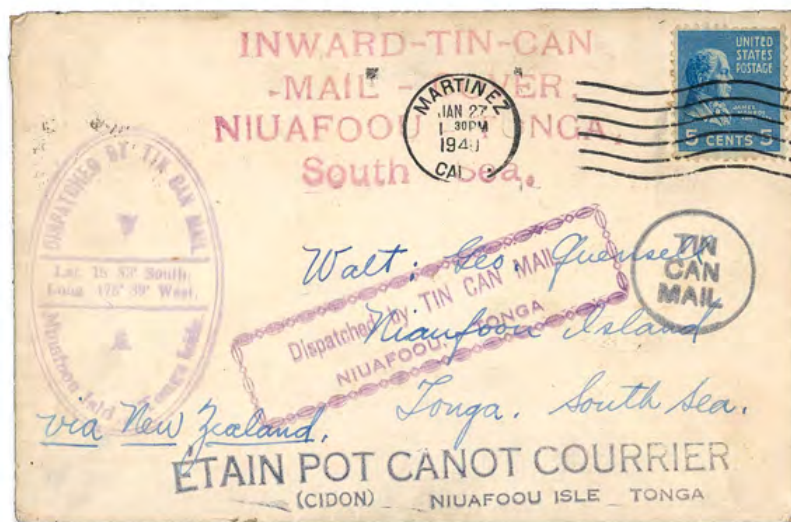 INWARD-TIN-CAN
-MAIL - COVER.
NIUAFOOU TONGA.
South Sea.
MARTINEZ
JAN 27
1 30PM
1940
CAL
UNITED
STATES
POSTAGE
5 CENTS 5
DISPATCHED BY TIN CAN MAIL
South.
West.
TIN
CAN
MAIL
Walt. Geo. Quensell
Niuafoou Island
Tonga. South Sea.
via New Zealand.
Dispatched by TIN CAN MAIL
NIUAFOOU, TONGA
ÉTAIN POT CANOT COURRIER
(CIDON) NIUAFOOU ISLE TONGA